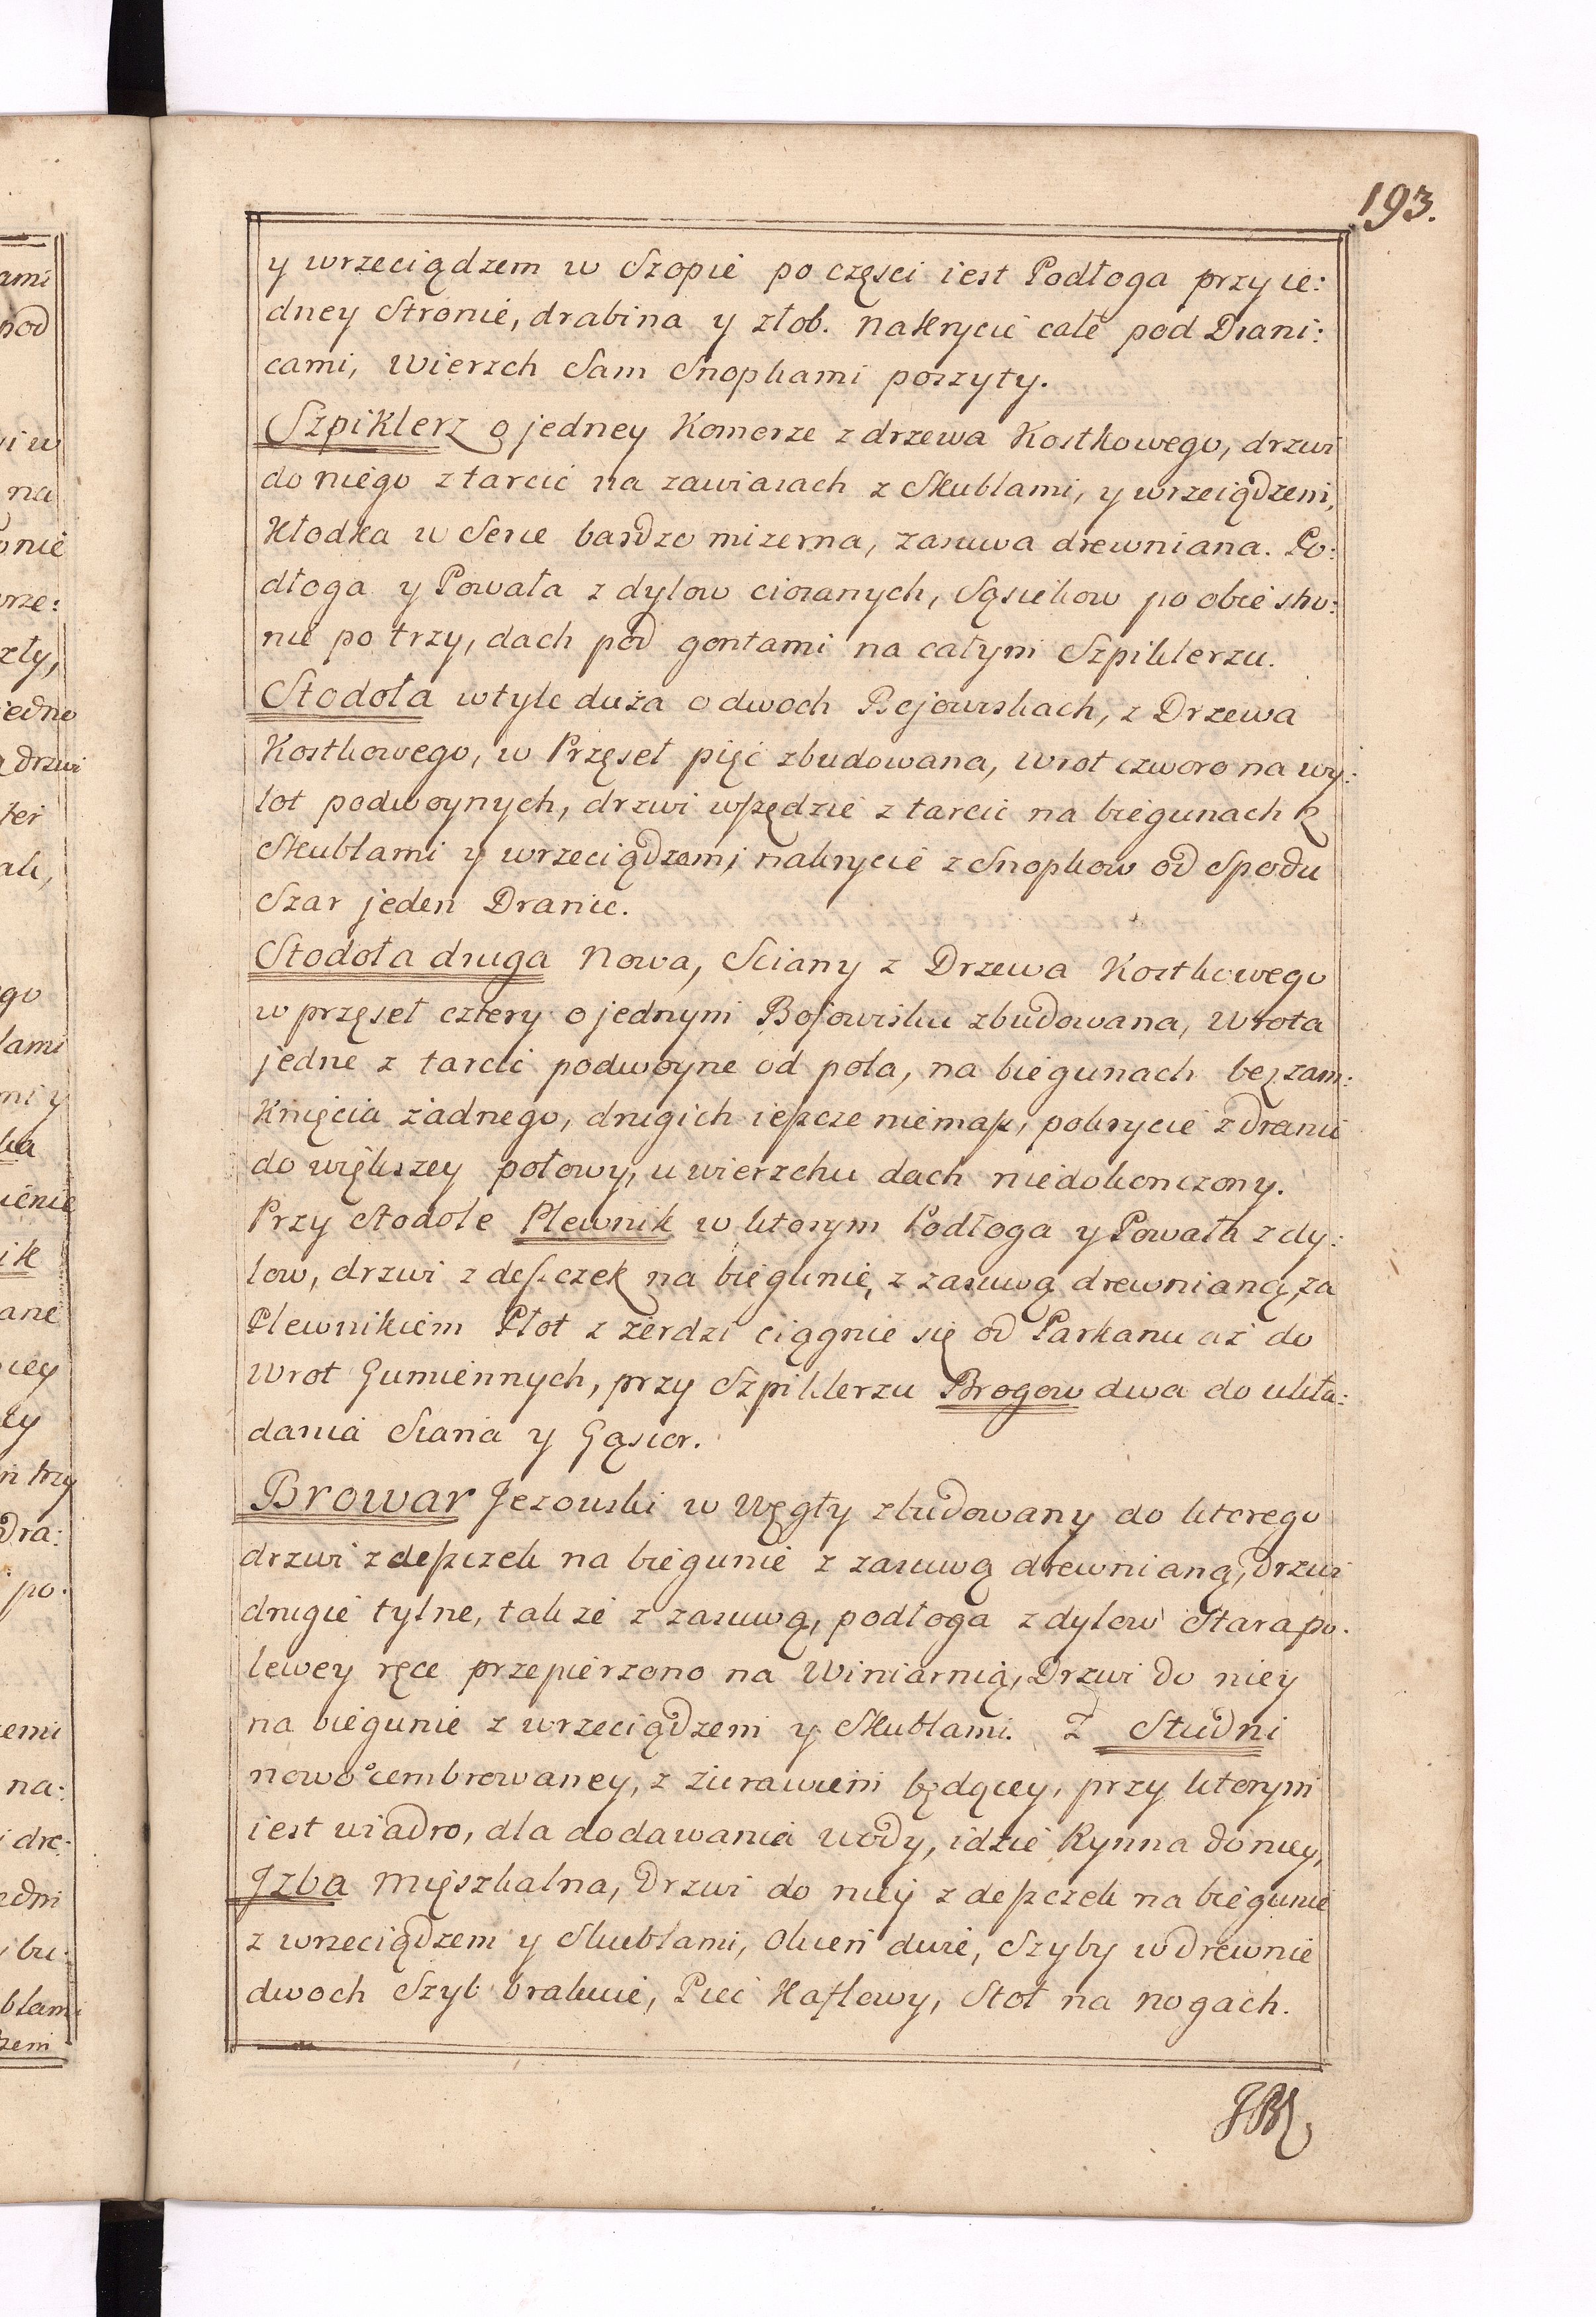 193.
y wrzeciądzem w Szopie po częsci iest Podłoga przy ie:
dney Stronie, drabina y złob. nakrycie całe pod Drani:
cami, wierzch Sam Snopkami poszyty.
Szpiklerz o jedney Komorze z drzewa Kostkowego, drzwi
do niego z tarcic na zawiasach z Skublami, y wrzeciądzem,
Kłodka w Serce bardzo mizerna, zasuwa drewniana. Po:
dłoga y Powała z dylow ciosanych, Sąsiekow po obie stro:
nie po trzy, dach pod gontami na całym Szpiklerzu.
Stodoła w tyle duża o dwoch Bojowiskach, z Drzewa
Kostkowego, w Przęseł pięć zbudowana, wrot czworo na wy:
lot podwoynych, drzwi wszędzie z tarcic na biegunach z
Skublami y wrzeciądzami, nakrycie z Snopkow od Spodu
Szar jeden Dranic.
Stodoła druga Nowa, Sciany z Drzewa Kostkowego
w przęseł cztery o jednym Bojowisku zbudowana, wrota
jedne z tarcic podwoyne od pola, na biegunach bez zam:
knięcia żadnego, drugich ieszcze niemasz, pokrycie z dranic
do większey połowy, u wierzchu dach niedokonczony.
Przy Stodole Plewnik w ktorym Podłoga y Powała z dy:
low, drzwi z deszczek na biegunie, z zasuwą drewnianą, za
Plewnikiem Płot z żerdzi ciągnie się od Parkanu aż do
wrot Gumiennych, przy Szpiklerzu Brogow dwa do ukła:
dania Siana y Gąsior.
Browar Jezowski w Węgły zbudowany do ktorego
drzwi z deszczek na biegunie z zasuwą drewnianą, drzwi
drugie tylne, także z zasuwą, podłoga z dylow Stara po
lewey ręce przepierzono na Winiarnią, Drzwi do niey
na biegunie z wrzeciądzem y Skublami. Z Studni
nowo cembrowaney, z żurawiem będącey, przy ktorym
iest wiadro, dla dodawania wody, idzie Rynna do niey,
Jzba Mięszkalna, Drzwi do niey z deszczek na biegunie
z wrzeciądzem y Skublami, Okien dwie, Szyby w drewnie
dwoch Szyb brakuie, Piec Kaflowy, Stoł na nogach.